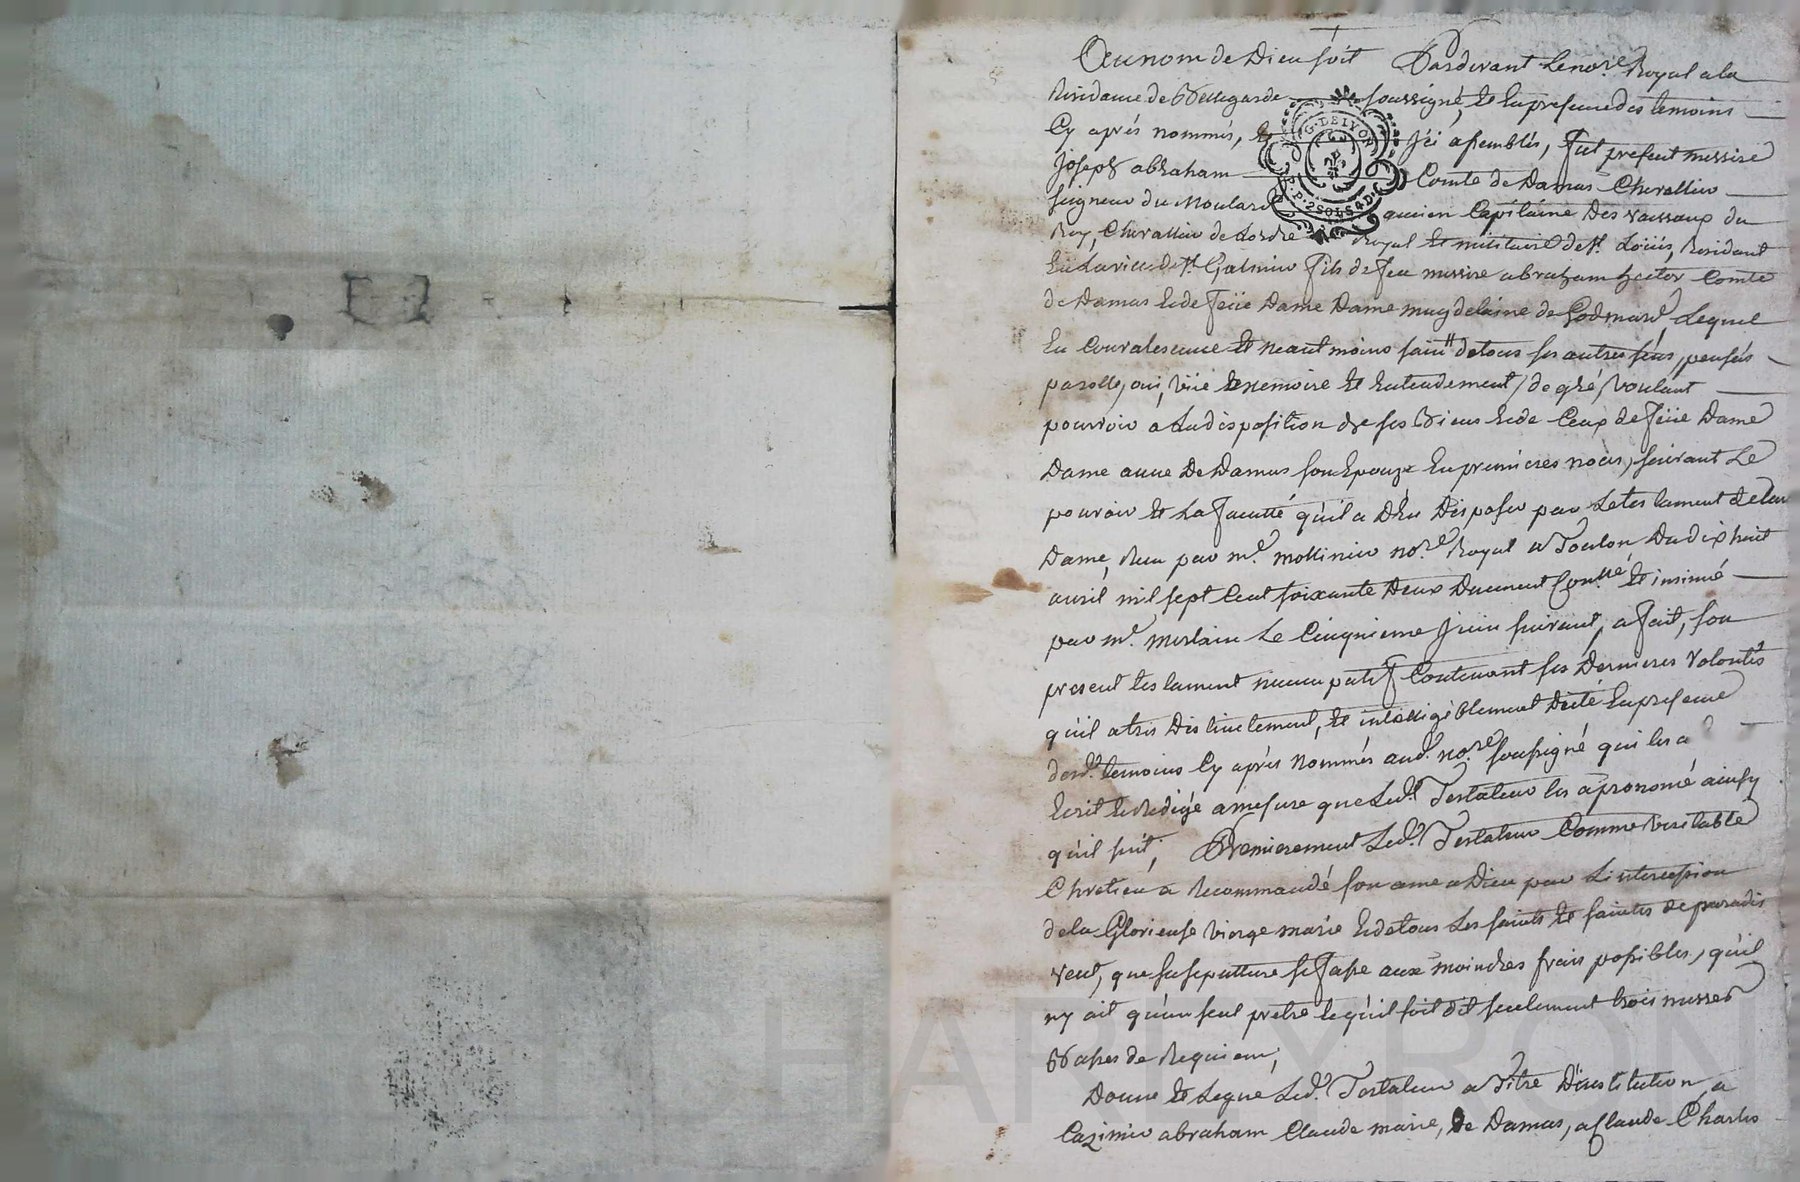 Au nom de Dieu soit Pardevant Le no.re Royal a la
Residance de Bellegarde soussigné, Et En presence des temoins
Cy aprés nommés, Et Ici assemblés, fut present messire
joseph abraham Comte de Damas Chevallier
seigneur du Moulard ancien Capitaine Des vaissaux du
Roy, Chevallier de Lordre Royal Et militaire de St. Loüis, Residant
En La ville de St. Galmier fils de feu messire abraham hector Comte
de Damas Et de feüe Dame Dame magdelaine de Godmard, Lequel
En Convalescence Et neant moins sain de tous ses autres sens, pensés
parolle, oui, vüe Et memoire Et Entendement, de gré, voulant
pourvoir a La disposition de ses Biens Et de Ceux de feüe Dame
Dame anne De Damas son Epouze En premieres noces, suivant Le
pouvoir Et La faculté qu'il a D'En Disposer par Le testament de lad.
Dame, Reçu par me. mollinier no.re Royal a Toulon Du dix huit
avril mil sept Cent soixante Deux Duement Con.llé Et insinué
par me. merlain Le Cinquieme Juin suivant, a fait, son
present testament nuncupatif Contenant ses Dernieres volontés
qu'il a tres Distinctement, Et intelligiblement Dicté En presence
desd. temoins Cy aprés nommés aud. no.re soussigné qui les a
Ecrit Et Redigé a mesure que Led. Testateur les a prononcé ainsy
qu'il suit, Premierement Led. Testateur Comme veritable
Chretien a Recommandé son ame a Dieu par L'intercession
de la Glorieuse vierge marie Et de tous Les saints Et saintes de paradis
veut, que sa sepulture se fasse aux moindres frais possibles, qu'il
ny ait qu'un seul prêtre Et qu'il soit dit seulement trois messes
Basses de Requiem,
Donne Et Legue Led. Testateur a Titre D'institution a
Cazimir abraham Claude marie, De Damas, a Claude Charles
G. DE LYON
P.P. 2 SOLS 4 D.